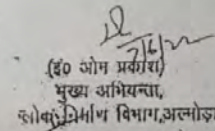 7/6/22
(इ० ओम प्रकाश)
मुख्य अभियन्ता,
लोक निर्माण विभाग, अल्मोड़